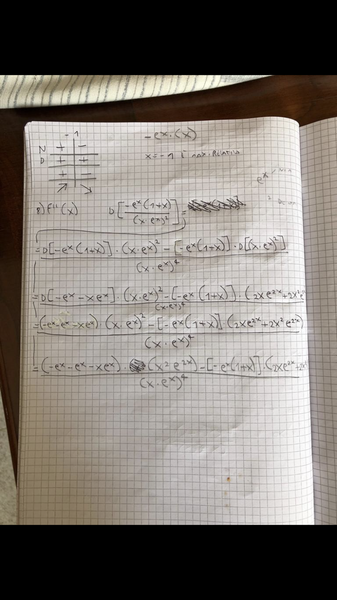 -1
-eˣ·(x)
N + -
x=-1 è max relativo
D + +
+ -
8) f''(x) D[-eˣ(1+x)/(x·eˣ)²]=
= D[-eˣ(1+x)]·(x·eˣ)²-[-eˣ(1+x)]·D[(x·eˣ)²]
(x·eˣ)⁴
= D[-eˣ-xeˣ]·(x·eˣ)²-[-eˣ(1+x)]·(2xe²ˣ+2x²e²ˣ
(x·eˣ)⁴
= (-eˣ-eˣ-xeˣ)(x·eˣ)²-[-eˣ(1+x)](2xe²ˣ+2x²e²ˣ)
(x·eˣ)⁴
= (-eˣ-eˣ-xeˣ)·(x²·e²ˣ)-[-eˣ(1+x)]·(2xe²ˣ+
(x·eˣ)⁴